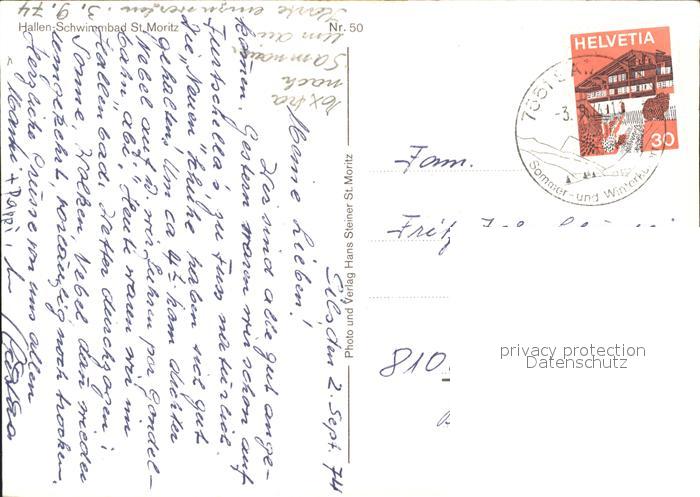 Hallen-Schwimmbad St. Moritz
Nr. 50
Extra
nach
Samnaun
um au
Marke einzuwerfen. 3.9.74
Sils, den 2. Sept. 74
Meine Lieben!
Wir sind alle gut ange-
komm. Gestern waren wir schon auf
Furtschella's, zu Fuss natürlich.
Die "Neuen" Schuhe haben sich gut
gehalten. Um ca 4h kam dichter
Nebel auf & wir fuhren per Gondel-
bahn ab. Heute waren wir im
Hallenbad. Wetter durchzogen:
Sonne, Wolken Nebel dann wieder
umgekehrt, vorläufig noch trocken.
Herzliche Grüsse von uns allen
Mami + Pappi,
Photo und Verlag Hans Steiner St. Moritz
HELVETIA
30
-3.
Sommer- und Winterkur
Fam.
Fritz
810
privacy protection
Datenschutz